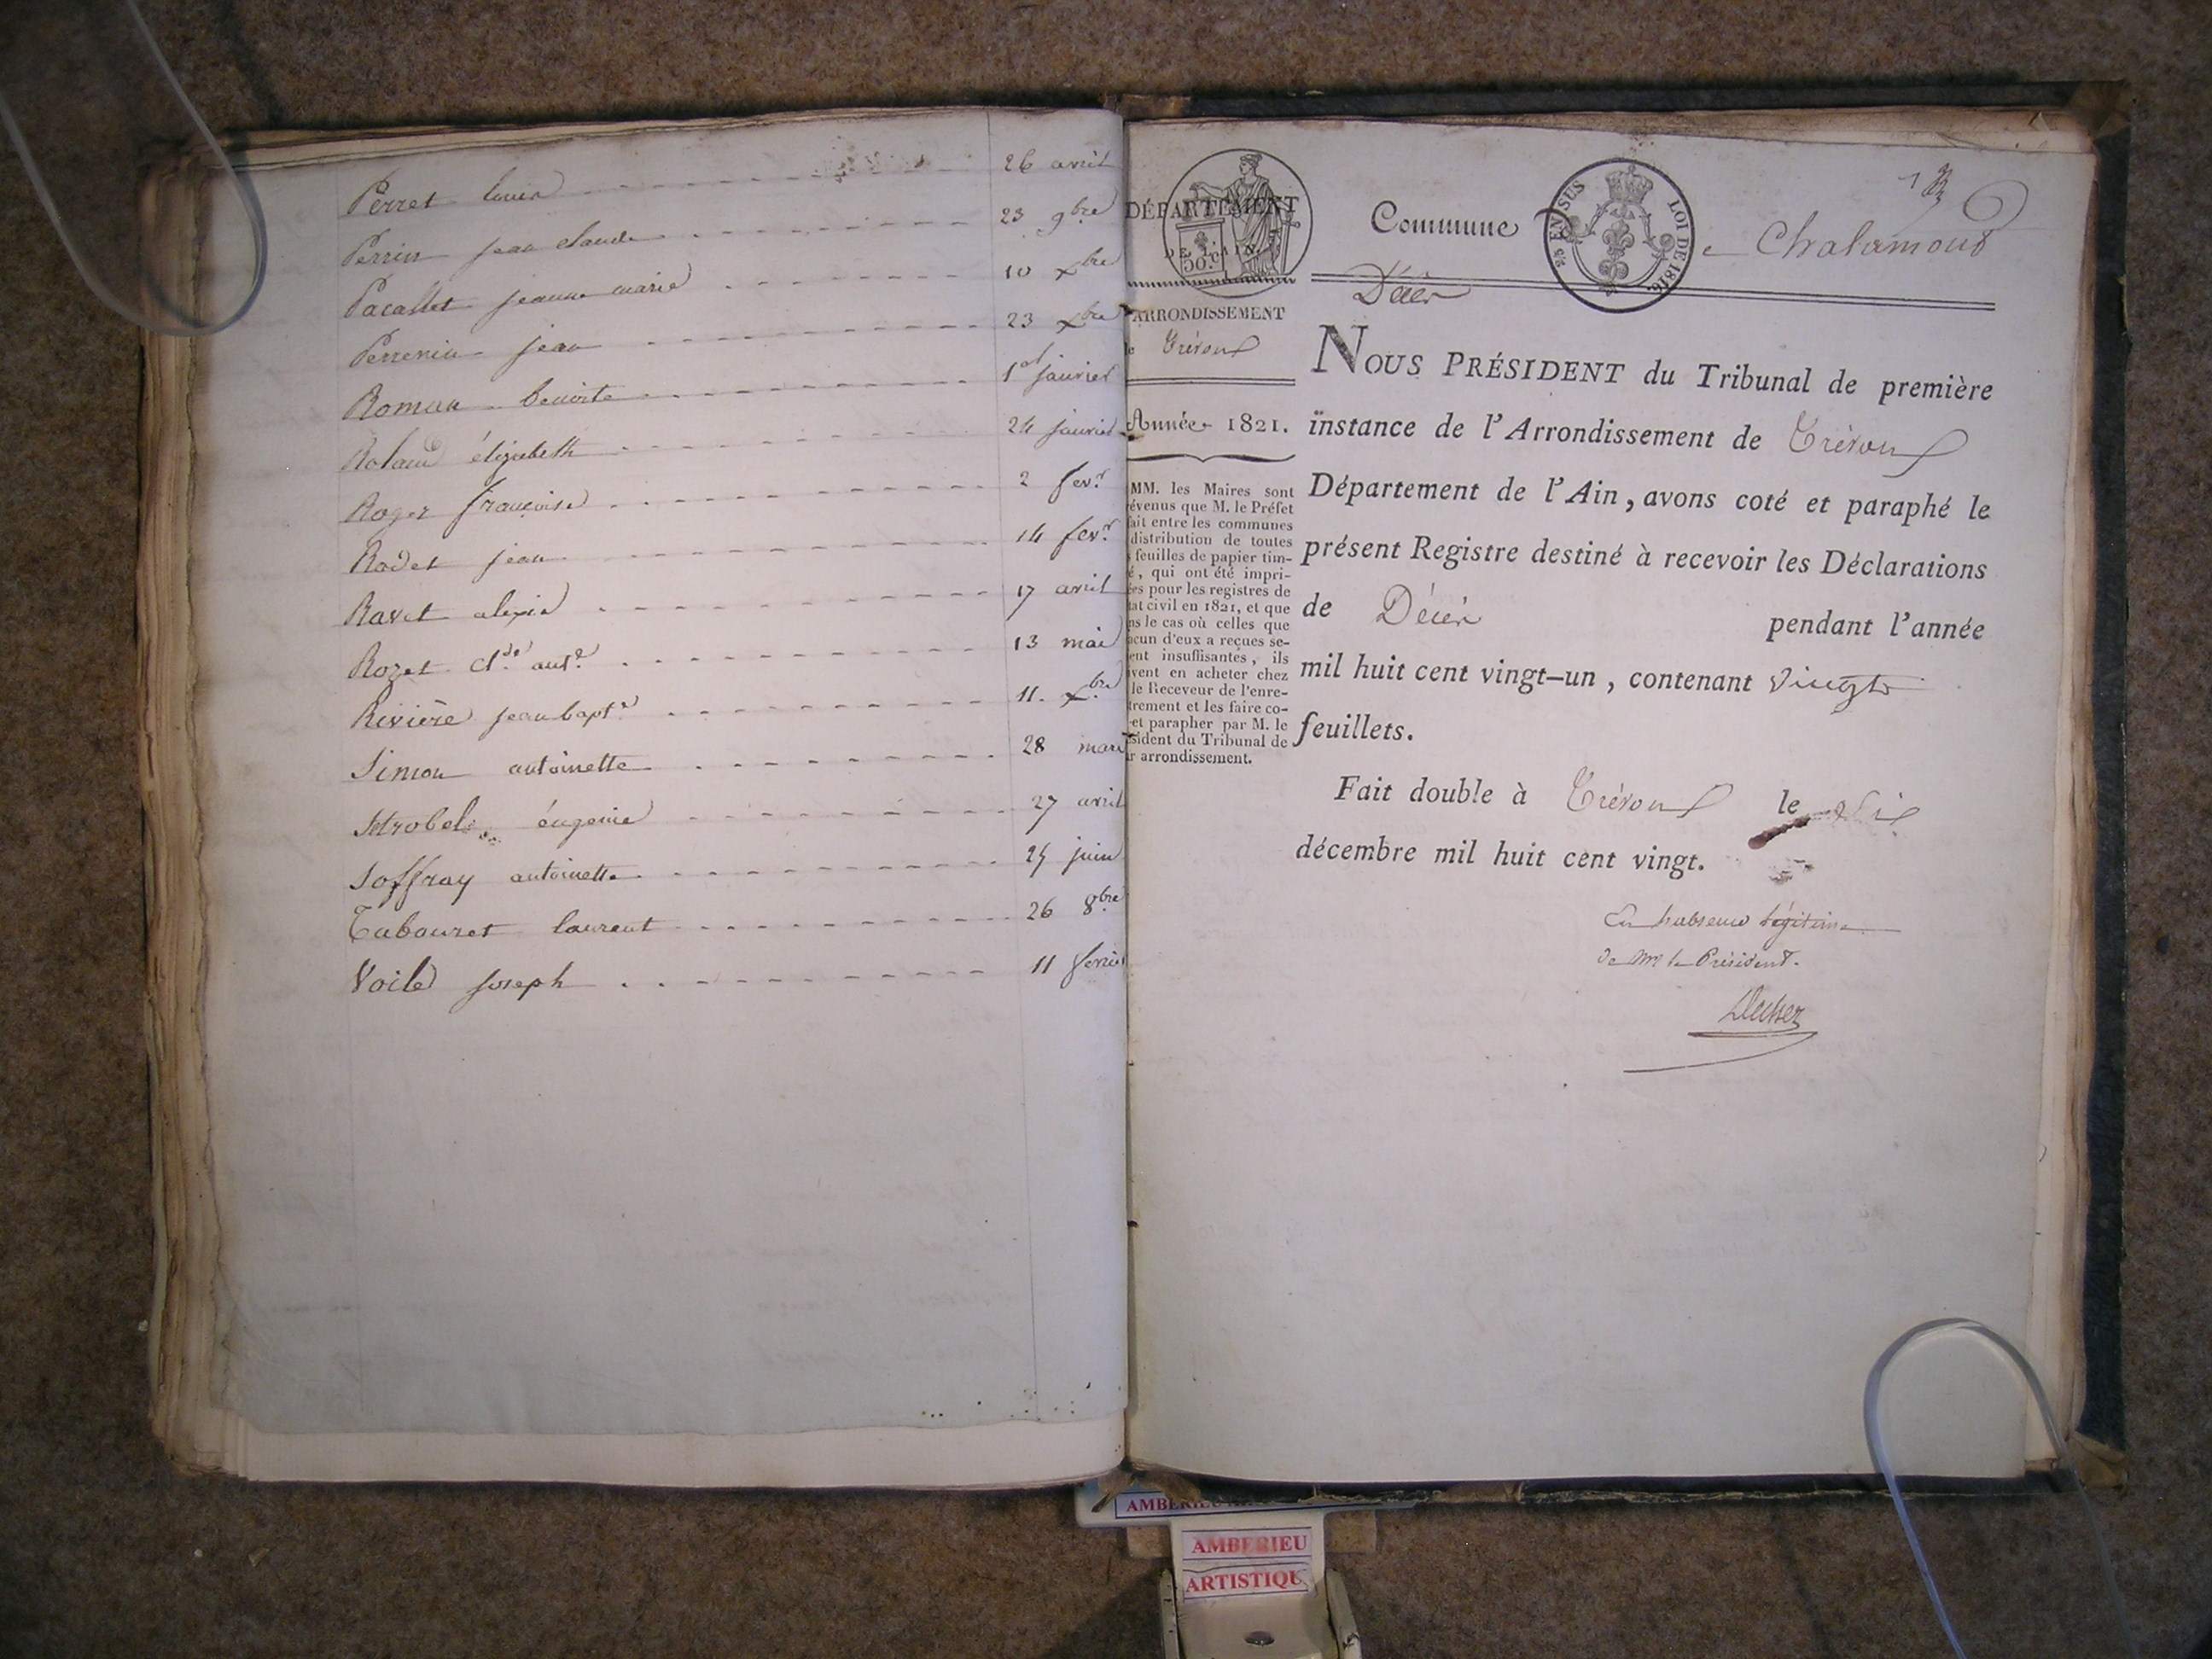 Perret louis 26 avril
Perrin jean claude 23 9bre
Pacallet jeanne marie 10 xbre
Perrenin jean 23 xbre
Roman benoite 1er janvier
Roland élizabeth 24 janvier
Roger françoise 2 fevr
Rodet jean 14 fevr
Ravet alexis 17 avril
Rozet cl.de ant.e 13 mai
Rivière jean bapt.e 11. xbre
Simon antoinette 28 mars
Strobel eugenie 27 avril
Soffray antoinette 25 juin
Tabouret laurent 26 8bre
Voile joseph 11 fevrier
DÉPARTEMENT
DE L'AIN.
50.c
ARRONDISSEMENT
de Trévoux
Année 1821.
MM. les Maires sont
évenus que M. le Préfet
ait entre les communes
distribution de toutes
s feuilles de papier tim-
é, qui ont été impri-
ées pour les registres de
tat civil en 1821, et que
ns le cas où celles que
acun d'eux a reçues se-
ent insuffisantes, ils
vent en acheter chez
le Receveur de l'enre-
trement et les faire co-
et parapher par M. le
sident du Tribunal de
r arrondissement.
Commune de Chalamont
EN SUS LOI DE 1816.
Décès
NOUS PRÉSIDENT du Tribunal de première
instance de l'Arrondissement de Trévoux
Département de l'Ain, avons coté et paraphé le
présent Registre destiné à recevoir les Déclarations
de Décès pendant l'année
mil huit cent vingt-un, contenant vingt
feuillets.
Fait double à Trévoux le six
décembre mil huit cent vingt.
En l'absence légitime
de Mr le Président.
AMBERIEU
AMBERIEU
ARTISTIQU